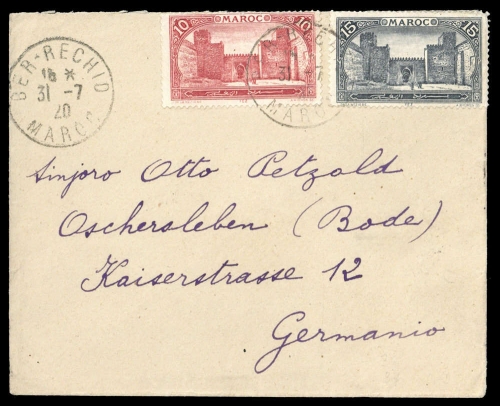 10 MAROC 10
15 MAROC 15
BER-RECHID
16 *
31 -7
20
MAROC
31 -7
MAROC
Sinjoro Otto Petzold
Oschersleben (Bode)
Kaiserstrasse 12
Germanio